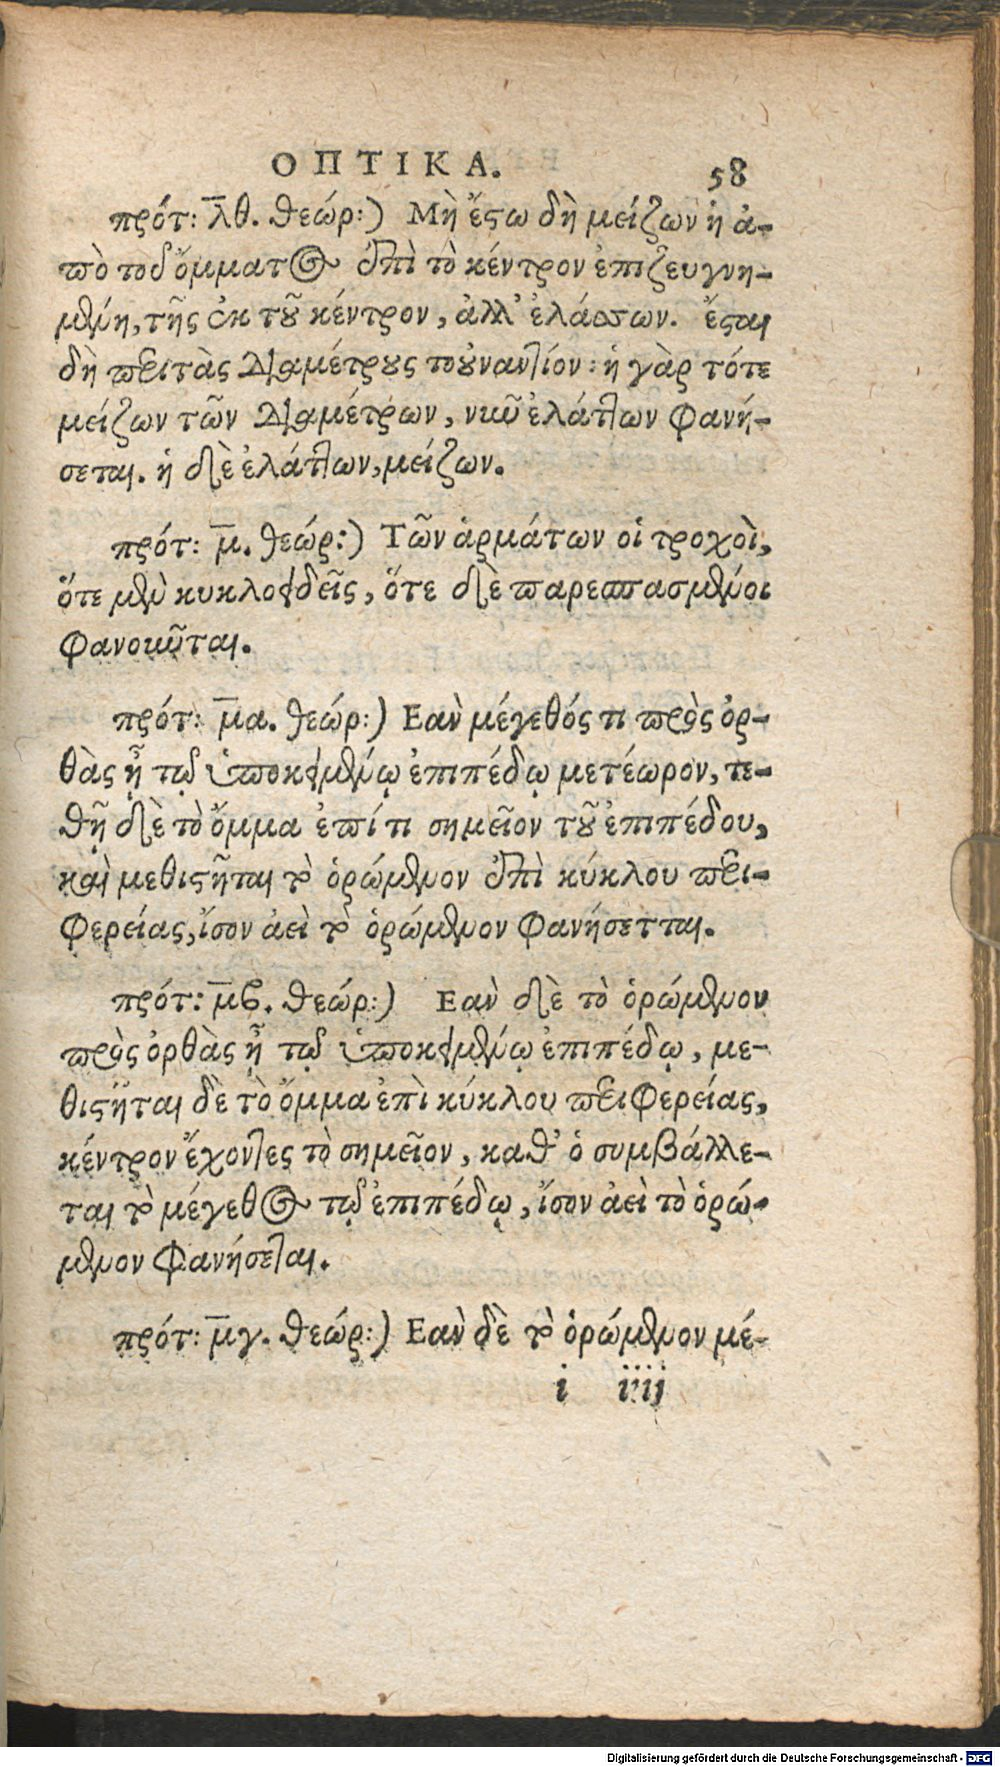 ΟΠΤΙΚΑ. 58
πρότ: λθ. θεώρ:) Μὴ ἔστω δὴ μείζων ἡ ἀ-
πὸ τοῦ ὄμματος ἐπὶ τὸ κέντρον ἐπιζευγνυ-
μένη, τῆς ἐκ τοῦ κέντρου, ἀλλ' ἐλάσσων. ἔσται
δὴ περὶ τὰς διαμέτρους τοὐναντίον: ἡ γὰρ τότε
μείζων τῶν διαμέτρων, νῦν ἐλάττων φανή-
σεται. ἡ δὲ ἐλάττων, μείζων.
πρότ: μ. θεώρ:) Τῶν ἁρμάτων οἱ τροχοὶ,
ὁτὲ μὲν κυκλοειδεῖς, ὅτε δὲ παρεσπασμένοι
φανοῦνται.
πρότ: μα. θεώρ:) Εαν μέγεθός τι πρὸς ὀρ-
θὰς ᾖ τῷ ὑποκειμένῳ ἐπιπέδῳ μετέωρον, τε-
θῇ δὲ τὸ ὄμμα ἐπί τι σημεῖον τοῦ ἐπιπέδου,
καὶ μεθιστῆται τὸ ὁρώμενον ἐπὶ κύκλου περι-
φερείας, ἴσον ἀεὶ τὸ ὁρώμενον φανήσετται.
πρότ: μβ. θεώρ:) Εαν δὲ τὸ ὁρώμενον
πρὸς ὀρθὰς ᾖ τῷ ὑποκειμένῳ ἐπιπέδῳ, με-
θιστῆται δὲ τὸ ὄμμα ἐπὶ κύκλου περιφερείας,
κέντρον ἔχοντες τὸ σημεῖον, καθ' ὁ συμβάλλε-
ται τὸ μέγεθος τῷ ἐπιπέδῳ, ἴσον ἀεὶ τὸ ὁρώ-
μενον φανήσεται.
πρότ: μγ. θεώρ:) Εαν δὲ τὸ ὁρώμενον μέ-
i iiij
Digitalisierung gefördert durch die Deutsche Forschungsgemeinschaft - DFG